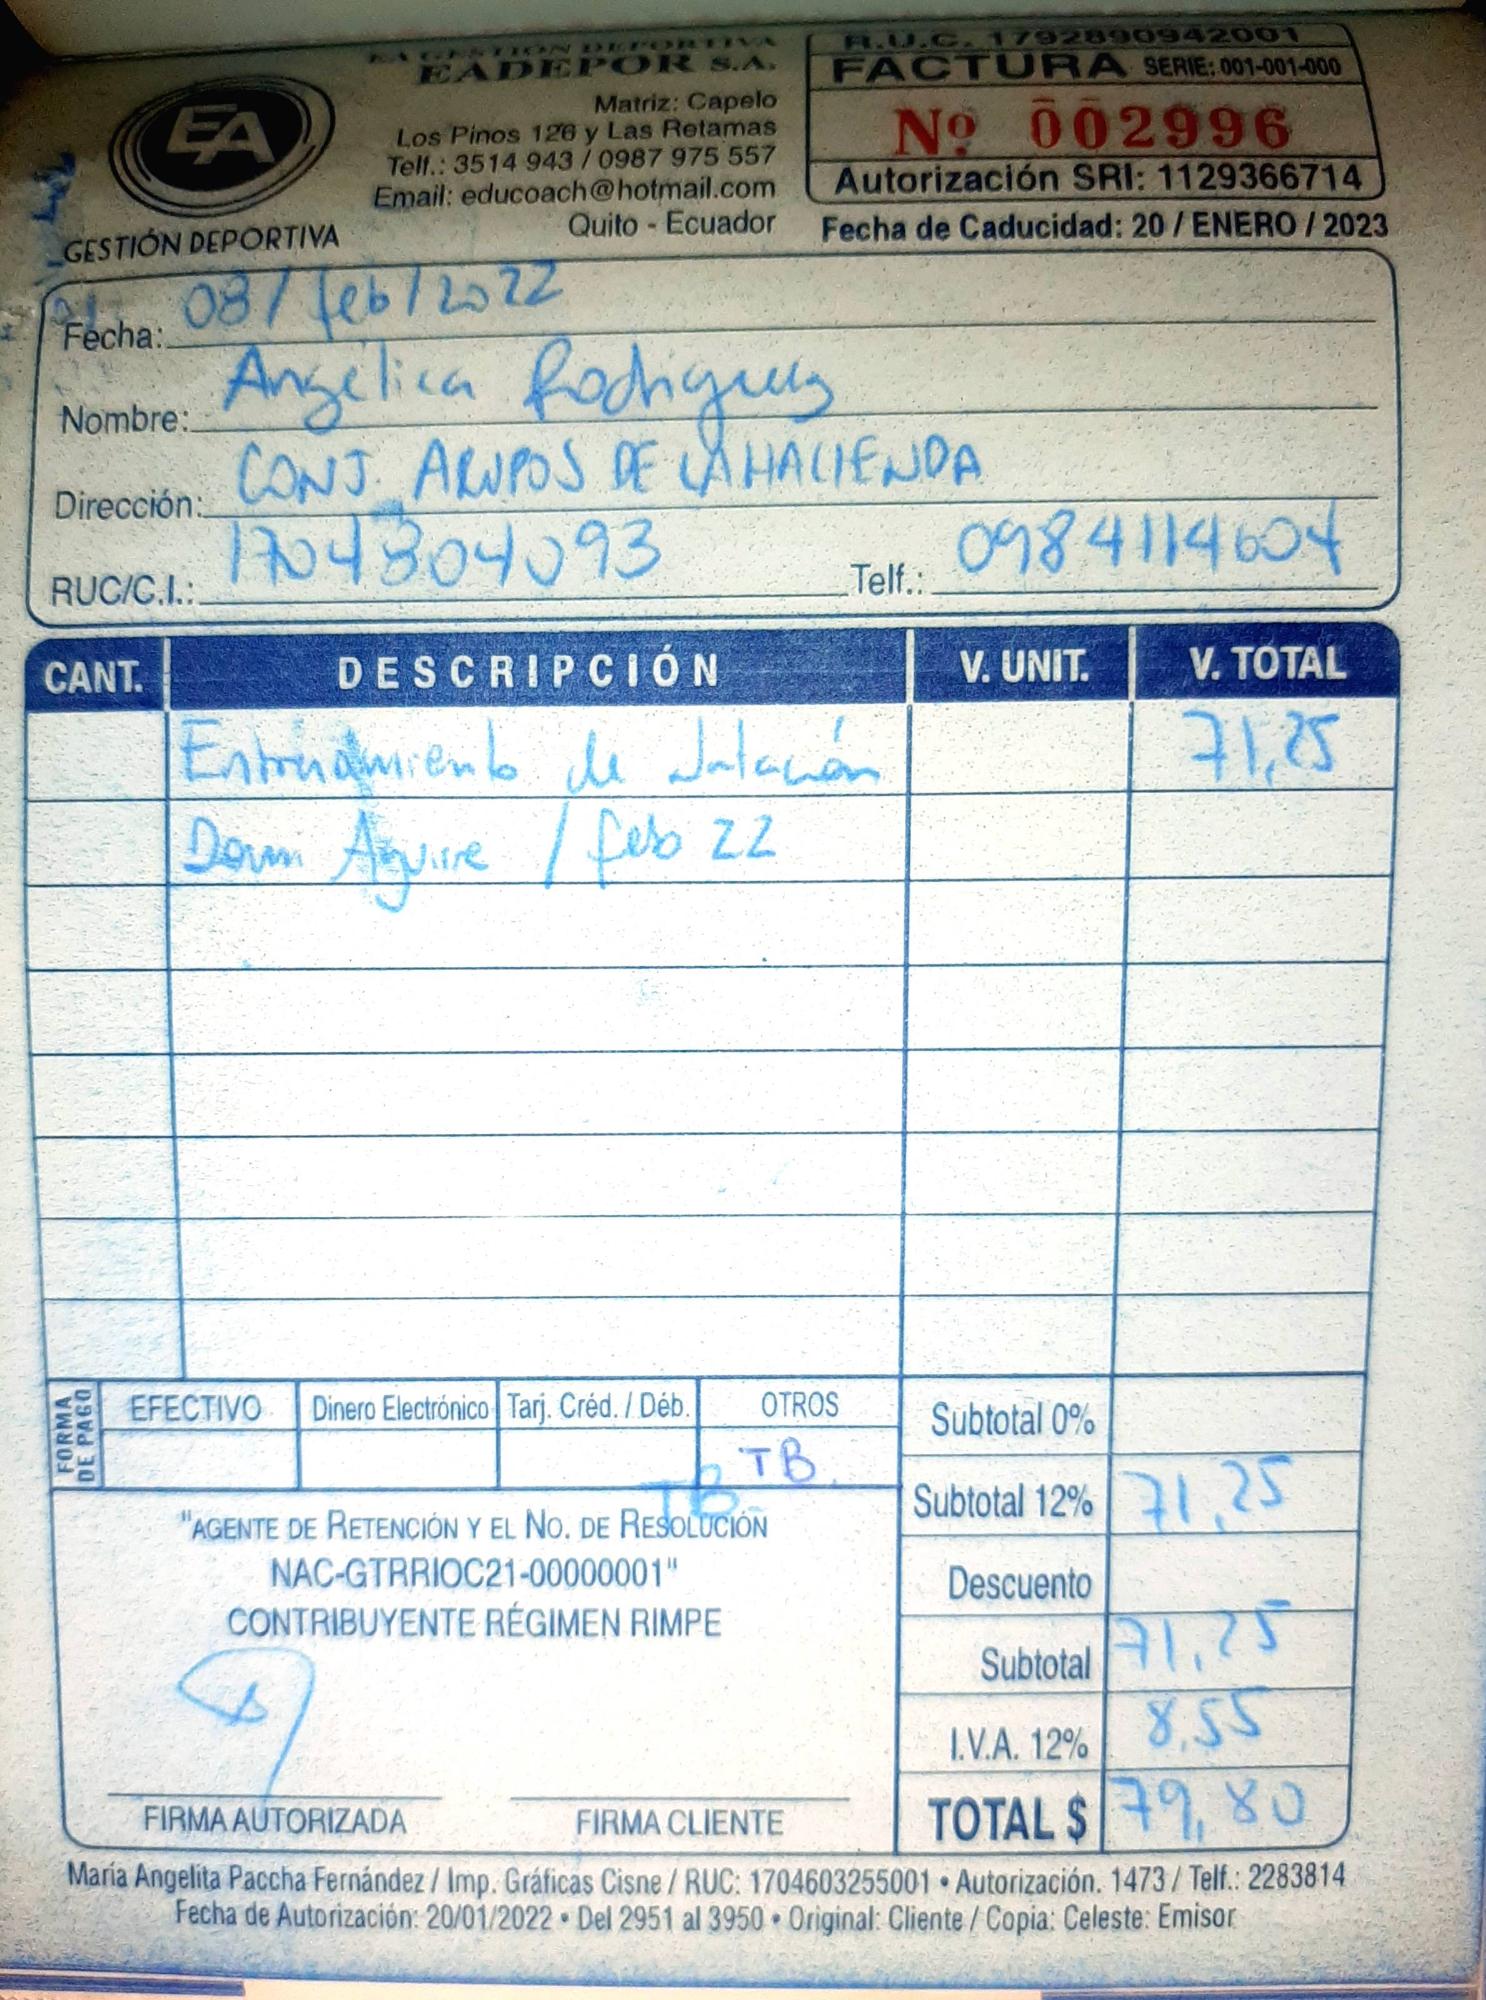 EA GESTION DEPORTIVA
EADEPOR S.A.
Matriz: Capelo
Los Pinos 126 y Las Retamas
Telf.: 3514 943 / 0987 975 557
Email: educoach@hotmail.com
Quito - Ecuador
EA
GESTIÓN DEPORTIVA
R.U.C. 1792890942001
FACTURA SERIE: 001-001-000
Nº 002996
Autorización SRI: 1129366714
Fecha de Caducidad: 20 / ENERO / 2023
Fecha: 08 / feb / 2022
Nombre: Angélica Rodriguez
Dirección: CONJ. ARUPOS DE LA HACIENDA
RUC/C.I.: 1704304093 Telf.: 0984114604
CANT. DESCRIPCIÓN V. UNIT. V. TOTAL
Entrenamiento de natación 71,25
Aguirre / feb 22
FORMA DE PAGO
EFECTIVO Dinero Electrónico Tarj. Créd. / Déb. OTROS
TB
TB
"AGENTE DE RETENCIÓN Y EL NO. DE RESOLUCIÓN
NAC-GTRRIOC21-00000001"
CONTRIBUYENTE RÉGIMEN RIMPE
FIRMA AUTORIZADA FIRMA CLIENTE
Subtotal 0%
Subtotal 12% 71,25
Descuento
Subtotal 71,25
I.V.A. 12% 8,55
TOTAL $ 79,80
María Angelita Paccha Fernández / Imp. Gráficas Cisne / RUC: 1704603255001 • Autorización. 1473 / Telf.: 2283814
Fecha de Autorización: 20/01/2022 • Del 2951 al 3950 • Original: Cliente / Copia: Celeste: Emisor